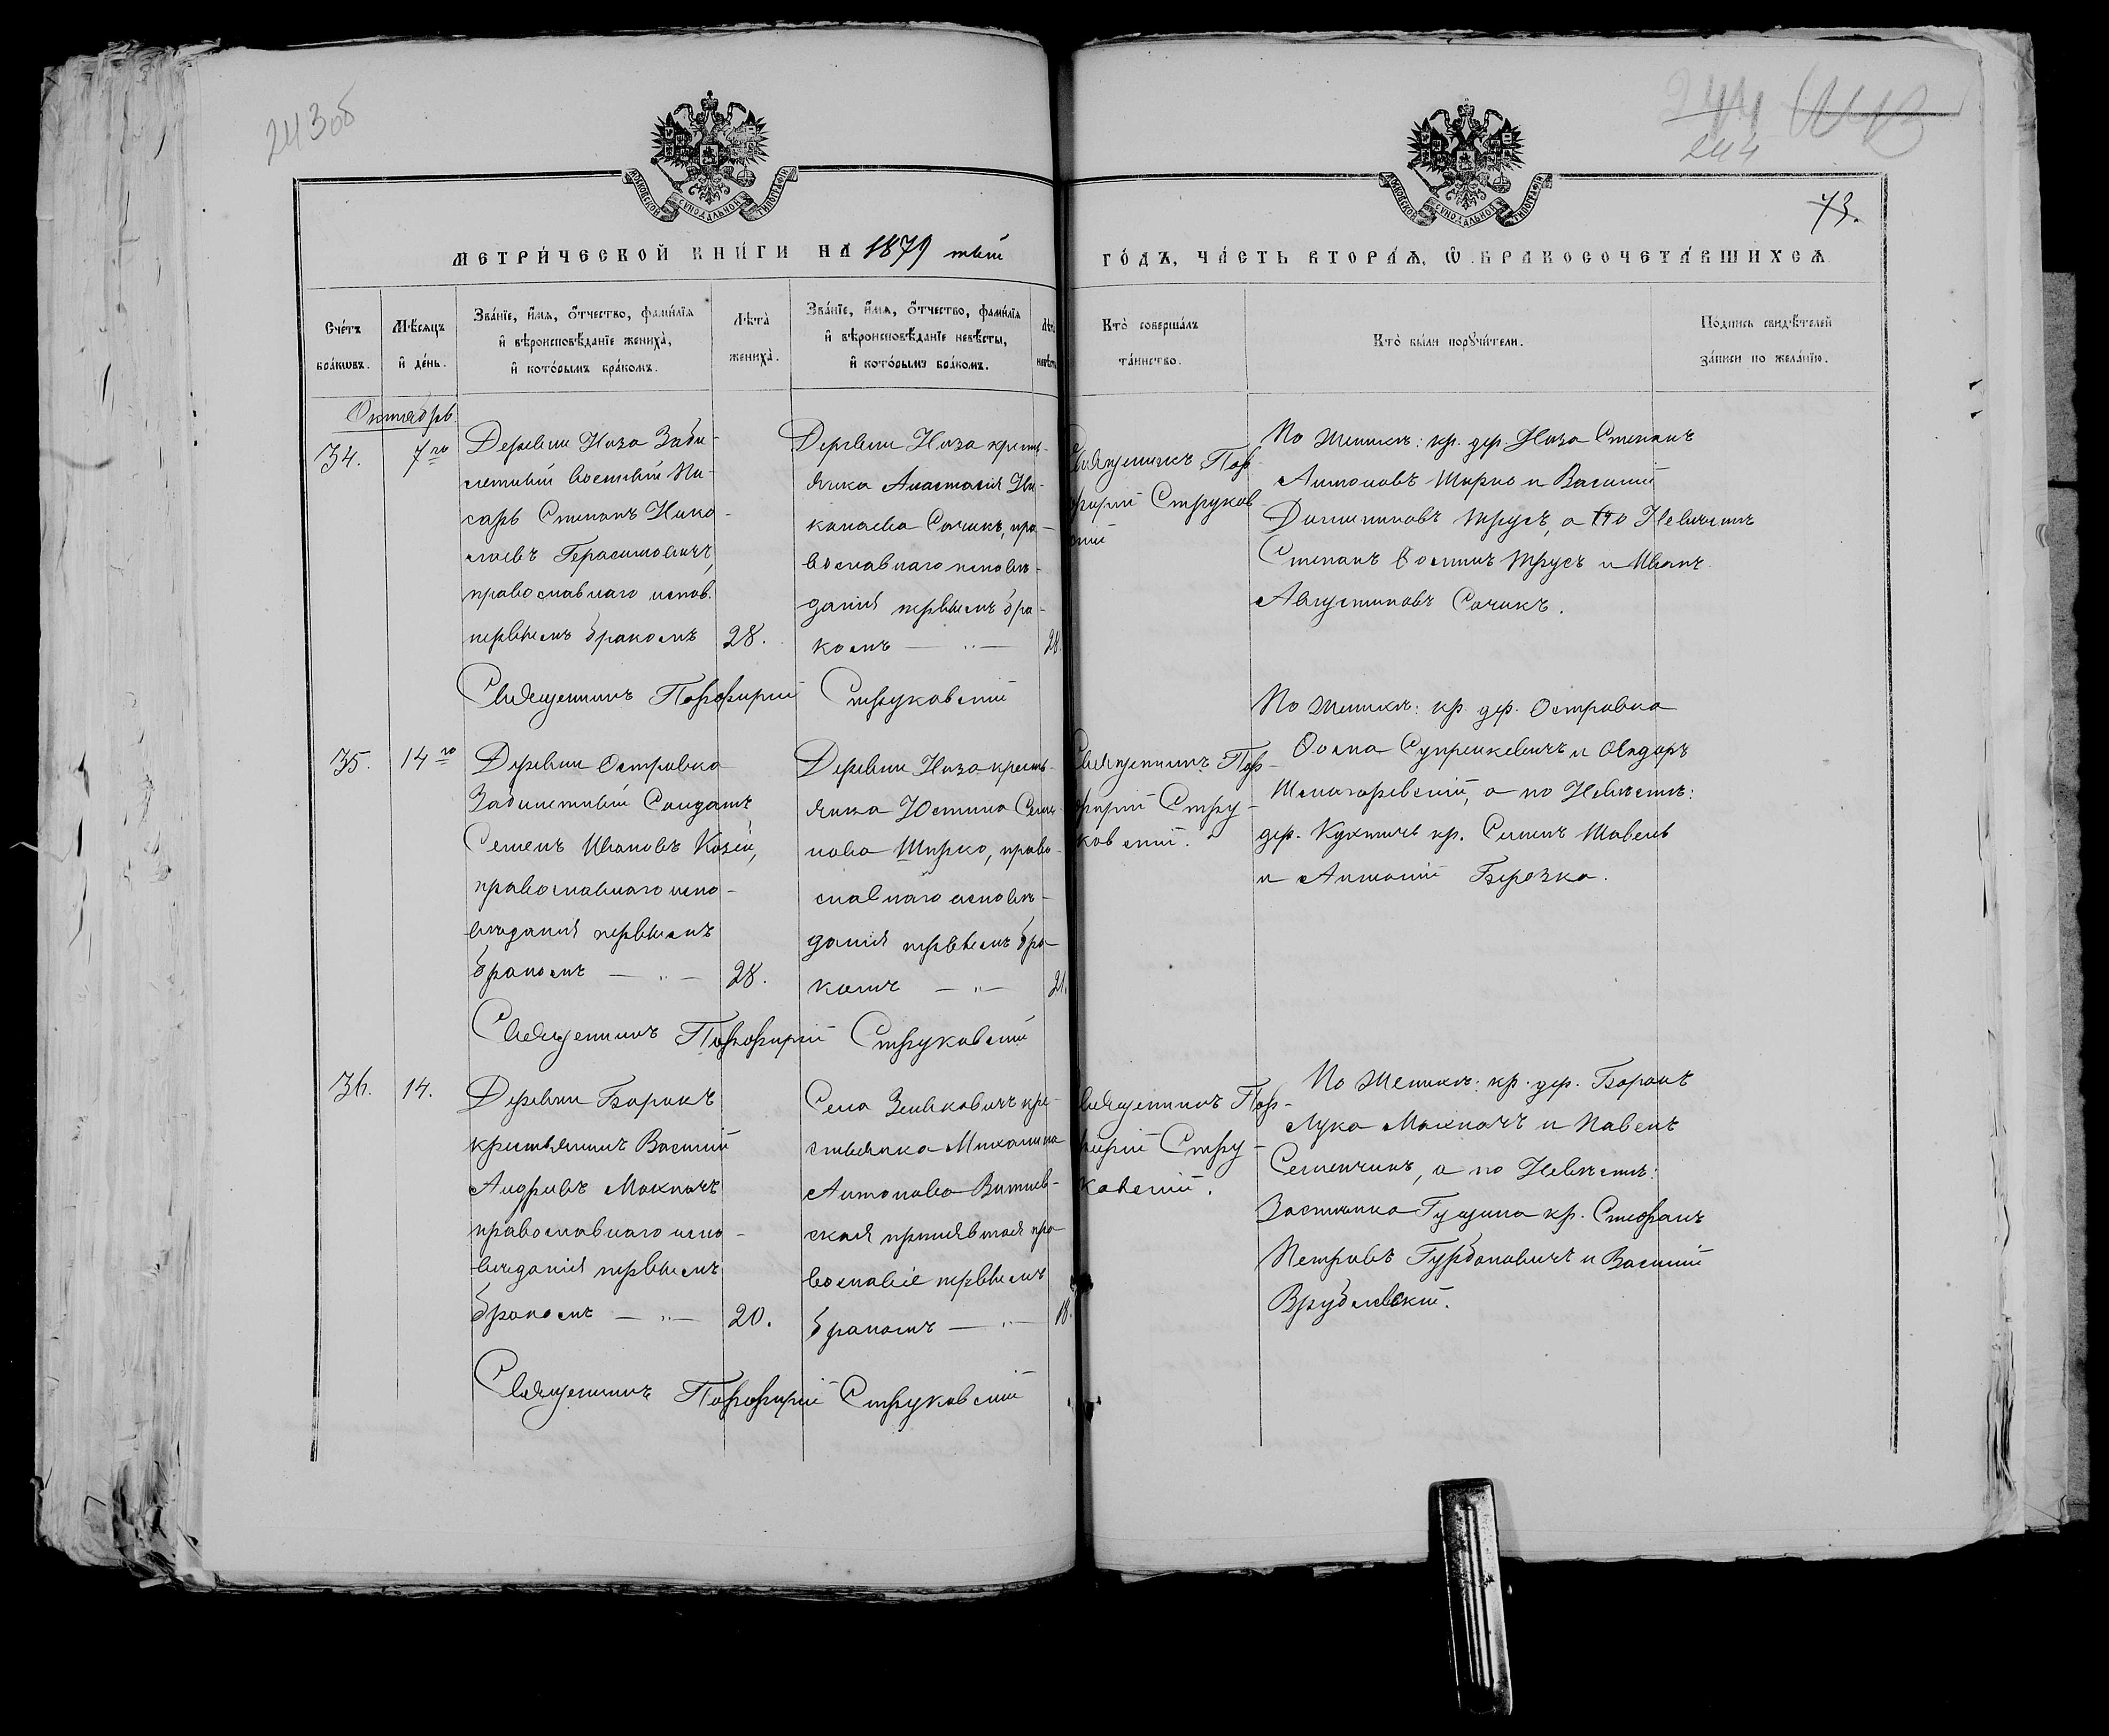 243об
244
73.
МОСКОВСКОЙ СѴНОДАЛЬНОЙ ТИПОГРАФІИ
МОСКОВСКОЙ СѴНОДАЛЬНОЙ ТИПОГРАФІИ
МЕТРИ́ЧЕСКОЙ КНИ́ГИ НА 1879 тый
ГО́ДЪ, ЧА́СТЬ ВТОРА́Ѧ, Ѡ БРАКОСОЧЕТА́ВШИХСѦ
Сче́тъ бра́кѡвъ.
Мѣ́сяцъ и҆ де́нь.
Зва́нїе, и҆́мѧ, ѻ҆́тчество, фами́лїѧ
и҆ вѣроисповѣ́данїе жениха̀,
и҆ кото́рымъ бра́комъ.
Лѣ́та̀ жениха̀.
Зва́нїе, и҆́мѧ, ѻ҆́тчество, фами́лїѧ
и҆ вѣроисповѣ́данїе невѣ́сты,
и҆ кото́рымъ бра́комъ.
Кто̀ соверша́лъ
та́инство.
Кто̀ бы́ли порꙋчи́тели.
По́дпись свидѣ́телей
за́писи по жела́нїю.
Октябрь
34.
7го
Деревни Низа Заби-
летный военный Пи-
сарь Степанъ Нико-
лаевъ Герасимовичъ,
православнаго испов.
первымъ бракомъ
28.
Деревни Низа кресть-
янка Анастасія Ни-
колаева Сочикъ, пра-
вославнаго исповѣ-
данія первымъ бра-
комъ — „ —
28.
Священникъ Пор-
фирій Струков
скій
По Женихѣ: кр. дер. Низа Степанъ
Антоновъ Ширко и Василій
Трусъ, а по Невѣстѣ
Степанъ Трусъ и Иванъ
Августиновъ Сочикъ.
Священникъ Порфирій Струковскій
35.
14го
Деревни Островка
Забилетный Солдатъ,
Семенъ Ивановъ Козей,
православнаго испо-
вѣданія первымъ
бракомъ — „ —
28.
Деревни Низа кресть-
янка Юстина Семе-
нова Ширко, право-
славнаго исповѣ-
данія первымъ бра-
комъ — „ —
21.
Священникъ Пор-
фирій Стру-
ковскій.
По Женихѣ: кр. дер. Островка
Ѳома Супренкевичъ и
а по Невѣстѣ:
дер. Кухтичъ кр. Семенъ Шавель
и Антоній Березка.
Священникъ Порфирій Струковскій
36.
14.
Деревни Боракъ
крестьянинъ Василій
Андреевъ Махначъ
православнаго испо-
вѣданія первымъ
бракомъ — „ —
20.
Села Зеньковичъ кре-
стьянка Михалина
Антонова Витнев-
ская принявшая пра-
вославіе первымъ
бракомъ — „ —
18.
Священникъ Пор-
фирій Стру-
ковскій.
По Женихѣ: кр. дер. Боракъ
Лука Махначъ и Павелъ
Семенчикъ, а по Невѣстѣ:
Застѣнка Гущина кр. Стефанъ
Петровъ Гурбановичъ и Василій
Врублевскій.
Священникъ Порфирій Струковскій